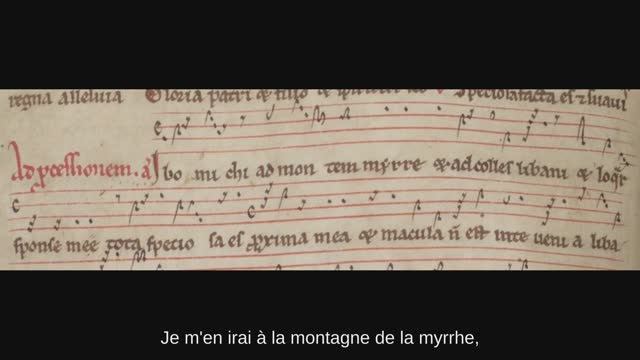 regna alleluia Gloria patri & filio & spiritui Speciosa facta es & suavi
Ad pcessionem. a Ibo mi chi ad mon tem myrre & ad colles libani & loqr
sponse mee tota specio sa es pxima mea & macula n est in te veni a liba
Je m'en irai à la montagne de la myrrhe,